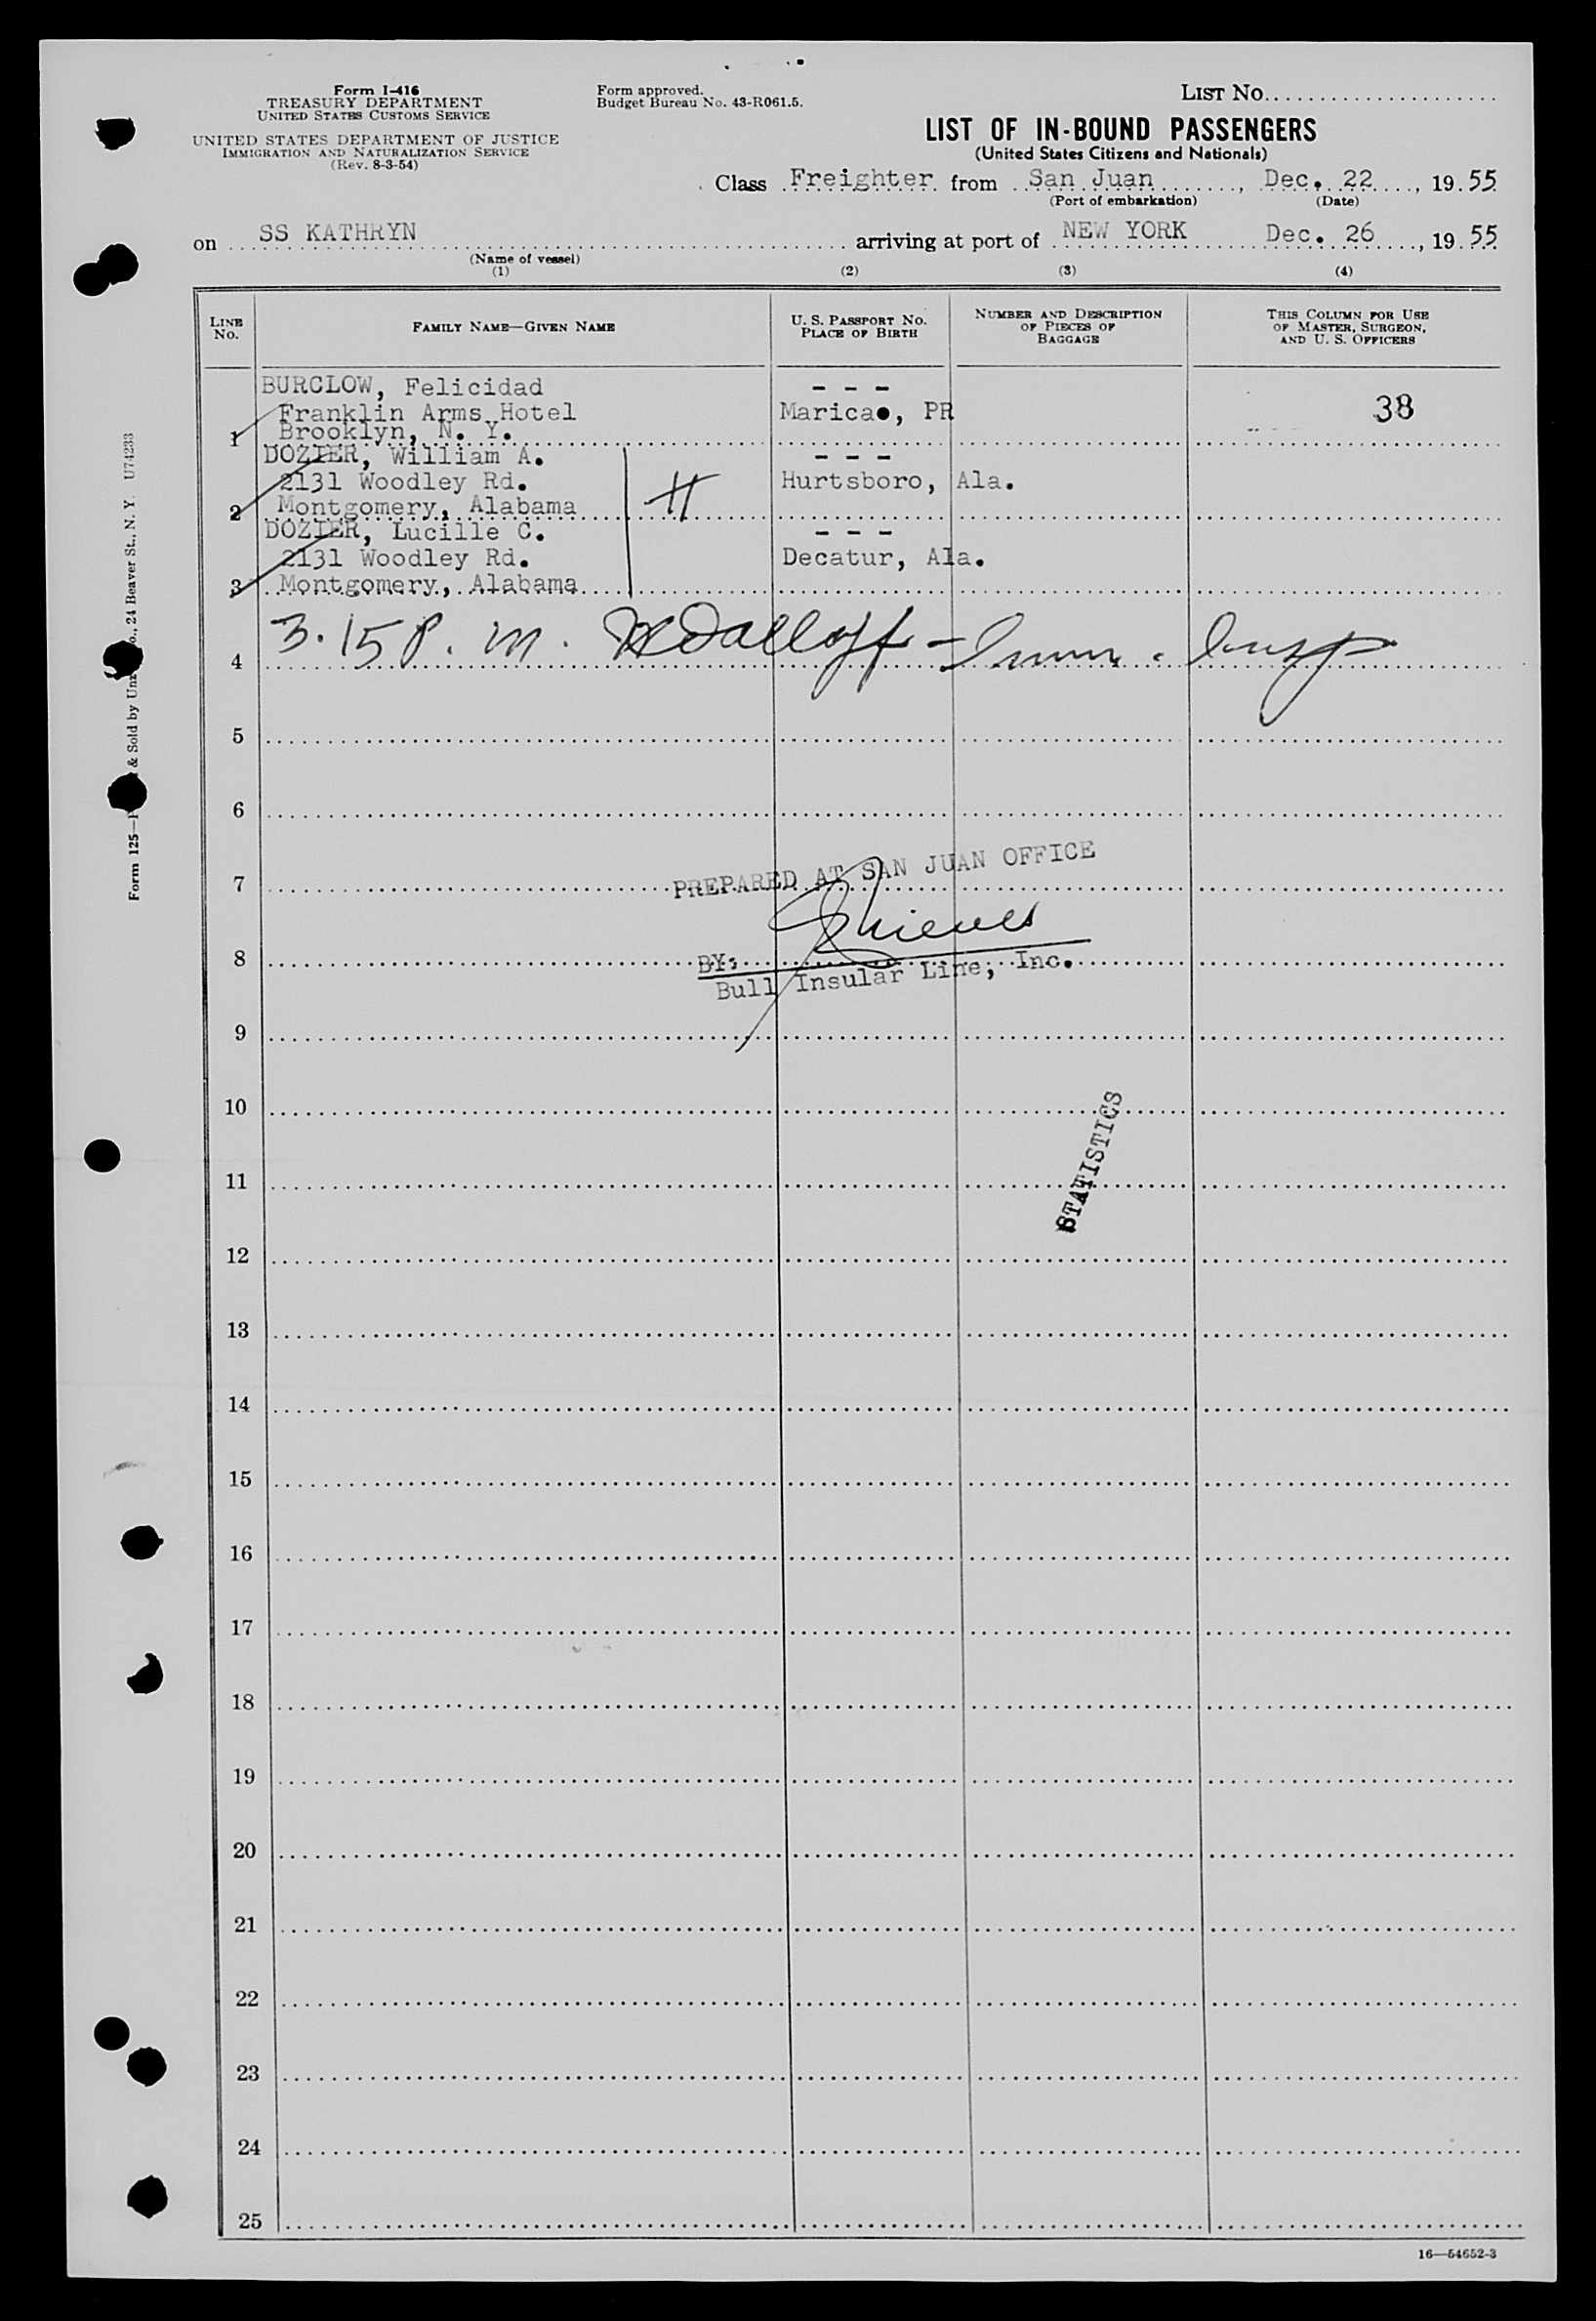 Form I-416
TREASURY DEPARTMENT
UNITED STATES CUSTOMS SERVICE
UNITED STATES DEPARTMENT OF JUSTICE
IMMIGRATION AND NATURALIZATION SERVICE
(Rev. 8-3-54)
Form approved.
Budget Bureau No. 43-R061.5.
LIST NO.
LIST OF IN-BOUND PASSENGERS
(United States Citizens and Nationals)
Class Freighter from San Juan, Dec. 22, 1955
(Port of embarkation) (Date)
on SS KATHRYN arriving at port of NEW YORK Dec. 26, 1955
(Name of vessel)
(1) (2) (3) (4)
LINE NO. FAMILY NAME—GIVEN NAME U. S. PASSPORT NO. PLACE OF BIRTH NUMBER AND DESCRIPTION OF PIECES OF BAGGAGE THIS COLUMN FOR USE OF MASTER, SURGEON, AND U. S. OFFICERS
BURCLOW, Felicidad - - -
Franklin Arms Hotel Maricao, PR 38
1 Brooklyn, N. Y.
DOZIER, William A. - - -
2131 Woodley Rd. Hurtsboro, Ala.
2 Montgomery, Alabama
DOZIER, Lucille C. - - -
2131 Woodley Rd. Decatur, Ala.
3 Montgomery, Alabama
4 3.15 P. m. - Imm. Insp
5
6
7 PREPARED AT SAN JUAN OFFICE
8 BY:
Bull Insular Line, Inc.
9
10
STATISTICS
11
12
13
14
15
16
17
18
19
20
21
22
23
24
25
16—54652-3
Form 125— & Sold by 24 Beaver St., N. Y. U74233